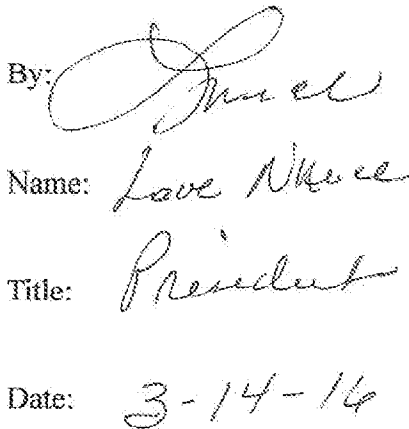 By:
Name: Love
Title: President
Date: 3-14-16